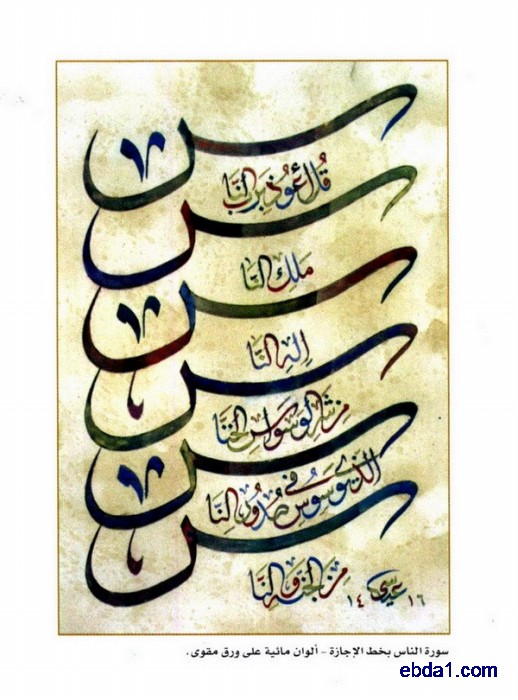 قل أعوذ برب الناس
ملك الناس
إله الناس
من شر الوسواس الخناس
الذي يوسوس في صدور الناس
من الجنة والناس
١٤ ١٦
سورة الناس بخط الإجازة - ألوان مائية على ورق مقوى.
ebda1.com